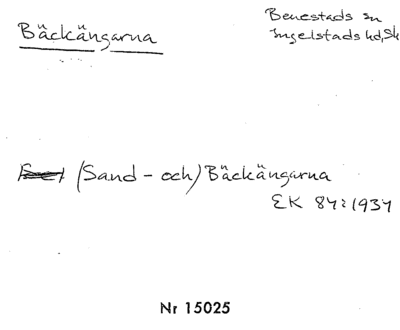 Bäckängarna
Benestads sn
Ingelstads hd, Sk
(Sand- och) Bäckängarna
EK 84:1934
Nr 15025